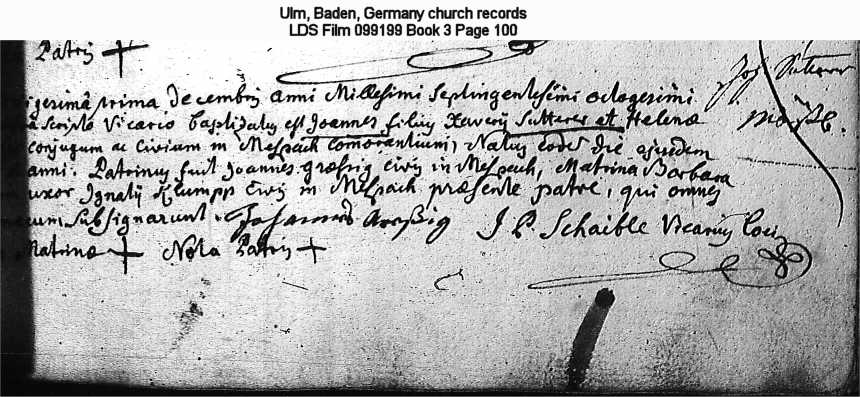 Ulm, Baden, Germany church records
LDS Film 099199 Book 3 Page 100
Patris +
Jos Sutterer
igesima prima Decembris anni Millesimi Septingentesimi octogesimi
a scripto Vicario baptizatus est Joannes filius Xaverij Sutterer et Helenæ
conjugum ac Civium in Mespach comorantium, Natus eodem die ejusdem
anni. Patrinus fuit Joannes græssig Civis in Mespach, Matrina Barbara
uxor Ignatij Klumpp Civis in Mespach, præsente patre, qui omnes
cum subsignarunt. Johannes Greßig J P. Schaible Vicarius loci
Matrinæ + Nota Patris +